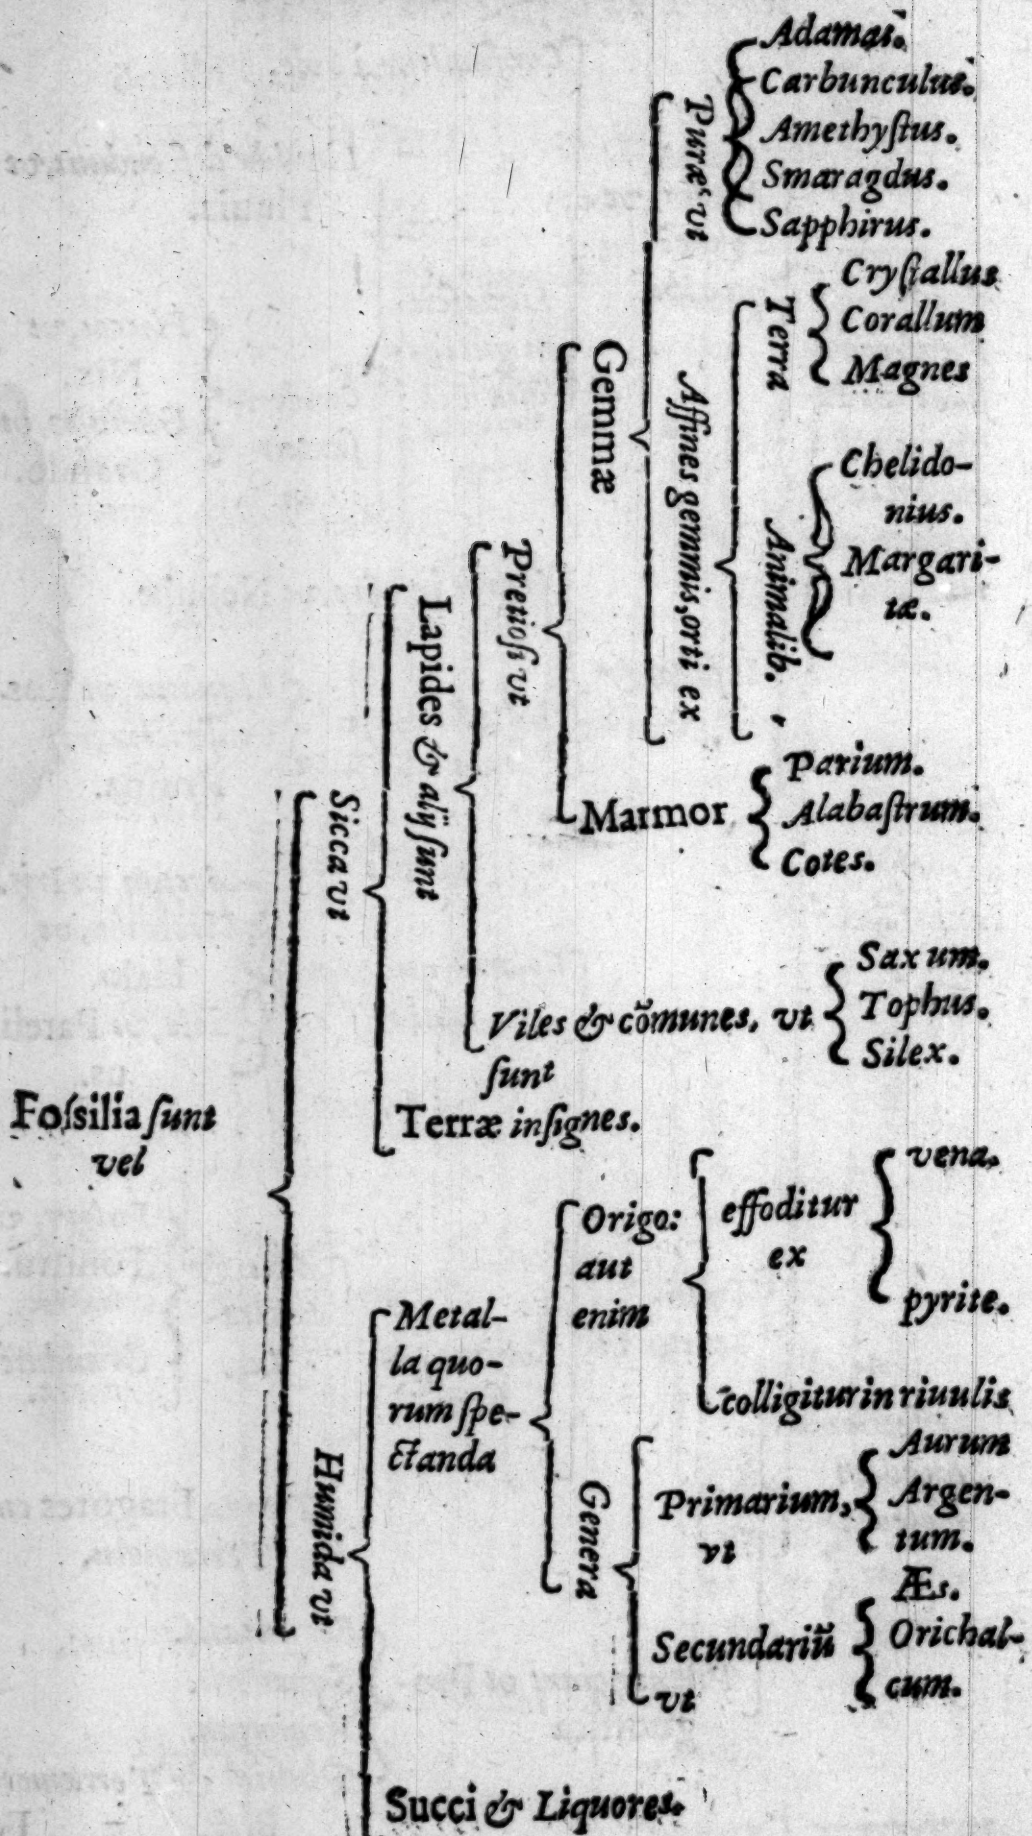 Foſsilia ſunt
vel
Sicca vt
Lapides & alij ſunt
Pretioſi vt
Gemmæ
Puræ vt
Adamas.
Carbunculus.
Amethyſtus.
Smaragdus.
Sapphirus.
Affines gemmis, orti ex
Terra
Cryſtallus
Corallum
Magnes
Animalib.
Chelido-
nius.
Margari-
tæ.
Marmor
Parium.
Alabaſtrum.
Cotes.
Viles & cōmunes, vt
ſunt
Saxum.
Tophus.
Silex.
Terræ inſignes.
Humida vt
Metal-
la quo-
rum ſpe-
ctanda
Origo:
aut
enim
effoditur
ex
vena.
pyrite.
colligitur in riuulis
Genera
Primarium,
vt
Aurum
Argen-
tum.
Secundariū
vt
Æs.
Orichal-
cum.
Succi & Liquores.